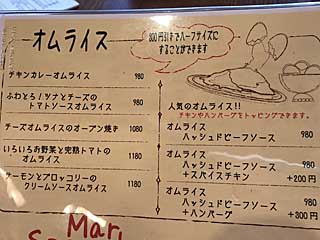 オムライス
300円引きでハーフサイズに
することができます
チキンカレーオムライス 980
ふわとろ!ツナとチーズの
トマトソースオムライス 980
チーズオムライスのオーブン焼き 1080
いろいろお野菜と完熟トマトの
オムライス 1180
サーモンとブロッコリーの
クリームソースオムライス 1180
人気のオムライス!!
チキンやハンバーグをトッピングできます。
オムライス
ハッシュドビーフソース 980
オムライス
ハッシュドビーフソース
+スパイスチキン +200円
オムライス
ハッシュドビーフソース
+ハンバーグ +300円
Mari